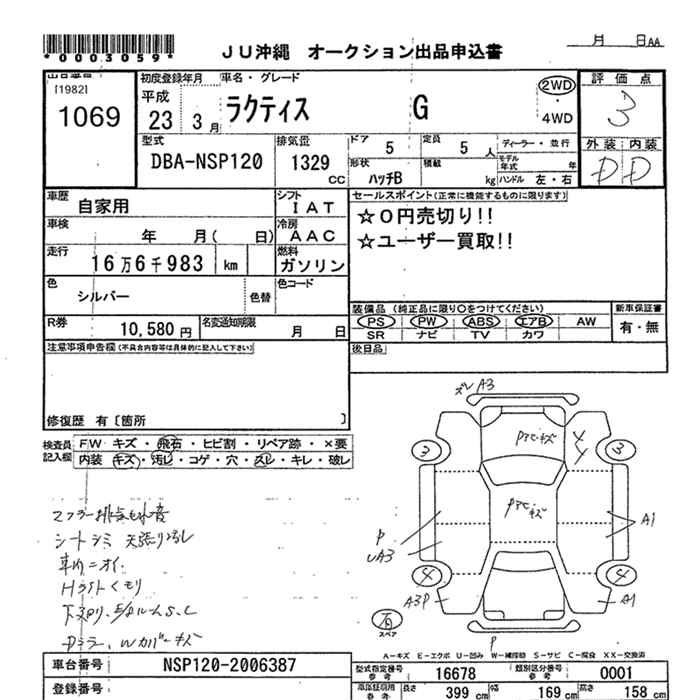 *0003059*
JU沖縄 オークション出品申込書
月 日AA
[1982]
1069
初度登録年月
平成
23 3 月
車名・グレード
ラクティス G
2WD
・
4WD
評価点
3
外装 内装
D D
型式
DBA-NSP120
排気量
1329
CC
ドア
5
定員
5 人
ディーラー・並行
形状
ハッチB
積載
kg
モデル年式 年
ハンドル 左・右
車歴
自家用
シフト
IAT
セールスポイント(正常に機能するものに限ります)
☆0円売切り!!
☆ユーザー買取!!
車検
年 月( 日)
冷房
AAC
走行
16万6千983 km
燃料
ガソリン
色
シルバー
色替
色コード
R券
10,580 円
名変通知期限
月 日
装備品(純正品に限り○をつけてください)
PS PW ABS エアB AW
SR ナビ TV カワ
新車保証書
有・無
後日品
注意事項申告欄(不具合内容等は具体的に記入して下さい)
修復歴 有〔箇所 〕
検査員記入欄
FW キズ・飛石・ヒビ割・リペア跡・×要
内装 キズ・汚レ・コゲ・穴・スレ・キレ・破レ
ズレ A3
3
3
A1
P
UA3
4
4
A3P
A1
スペア
P
シートシミ
車内ニオイ
Hライトくもり
A-キズ E-エクボ U-凹み W-補修跡 S-サビ C-腐食 XX-交換済
車台番号
NSP120-2006387
登録番号
型式指定番号
参考
16678
類別区分番号
参考
0001
長さ
399 cm
幅
169 cm
高さ
158 cm